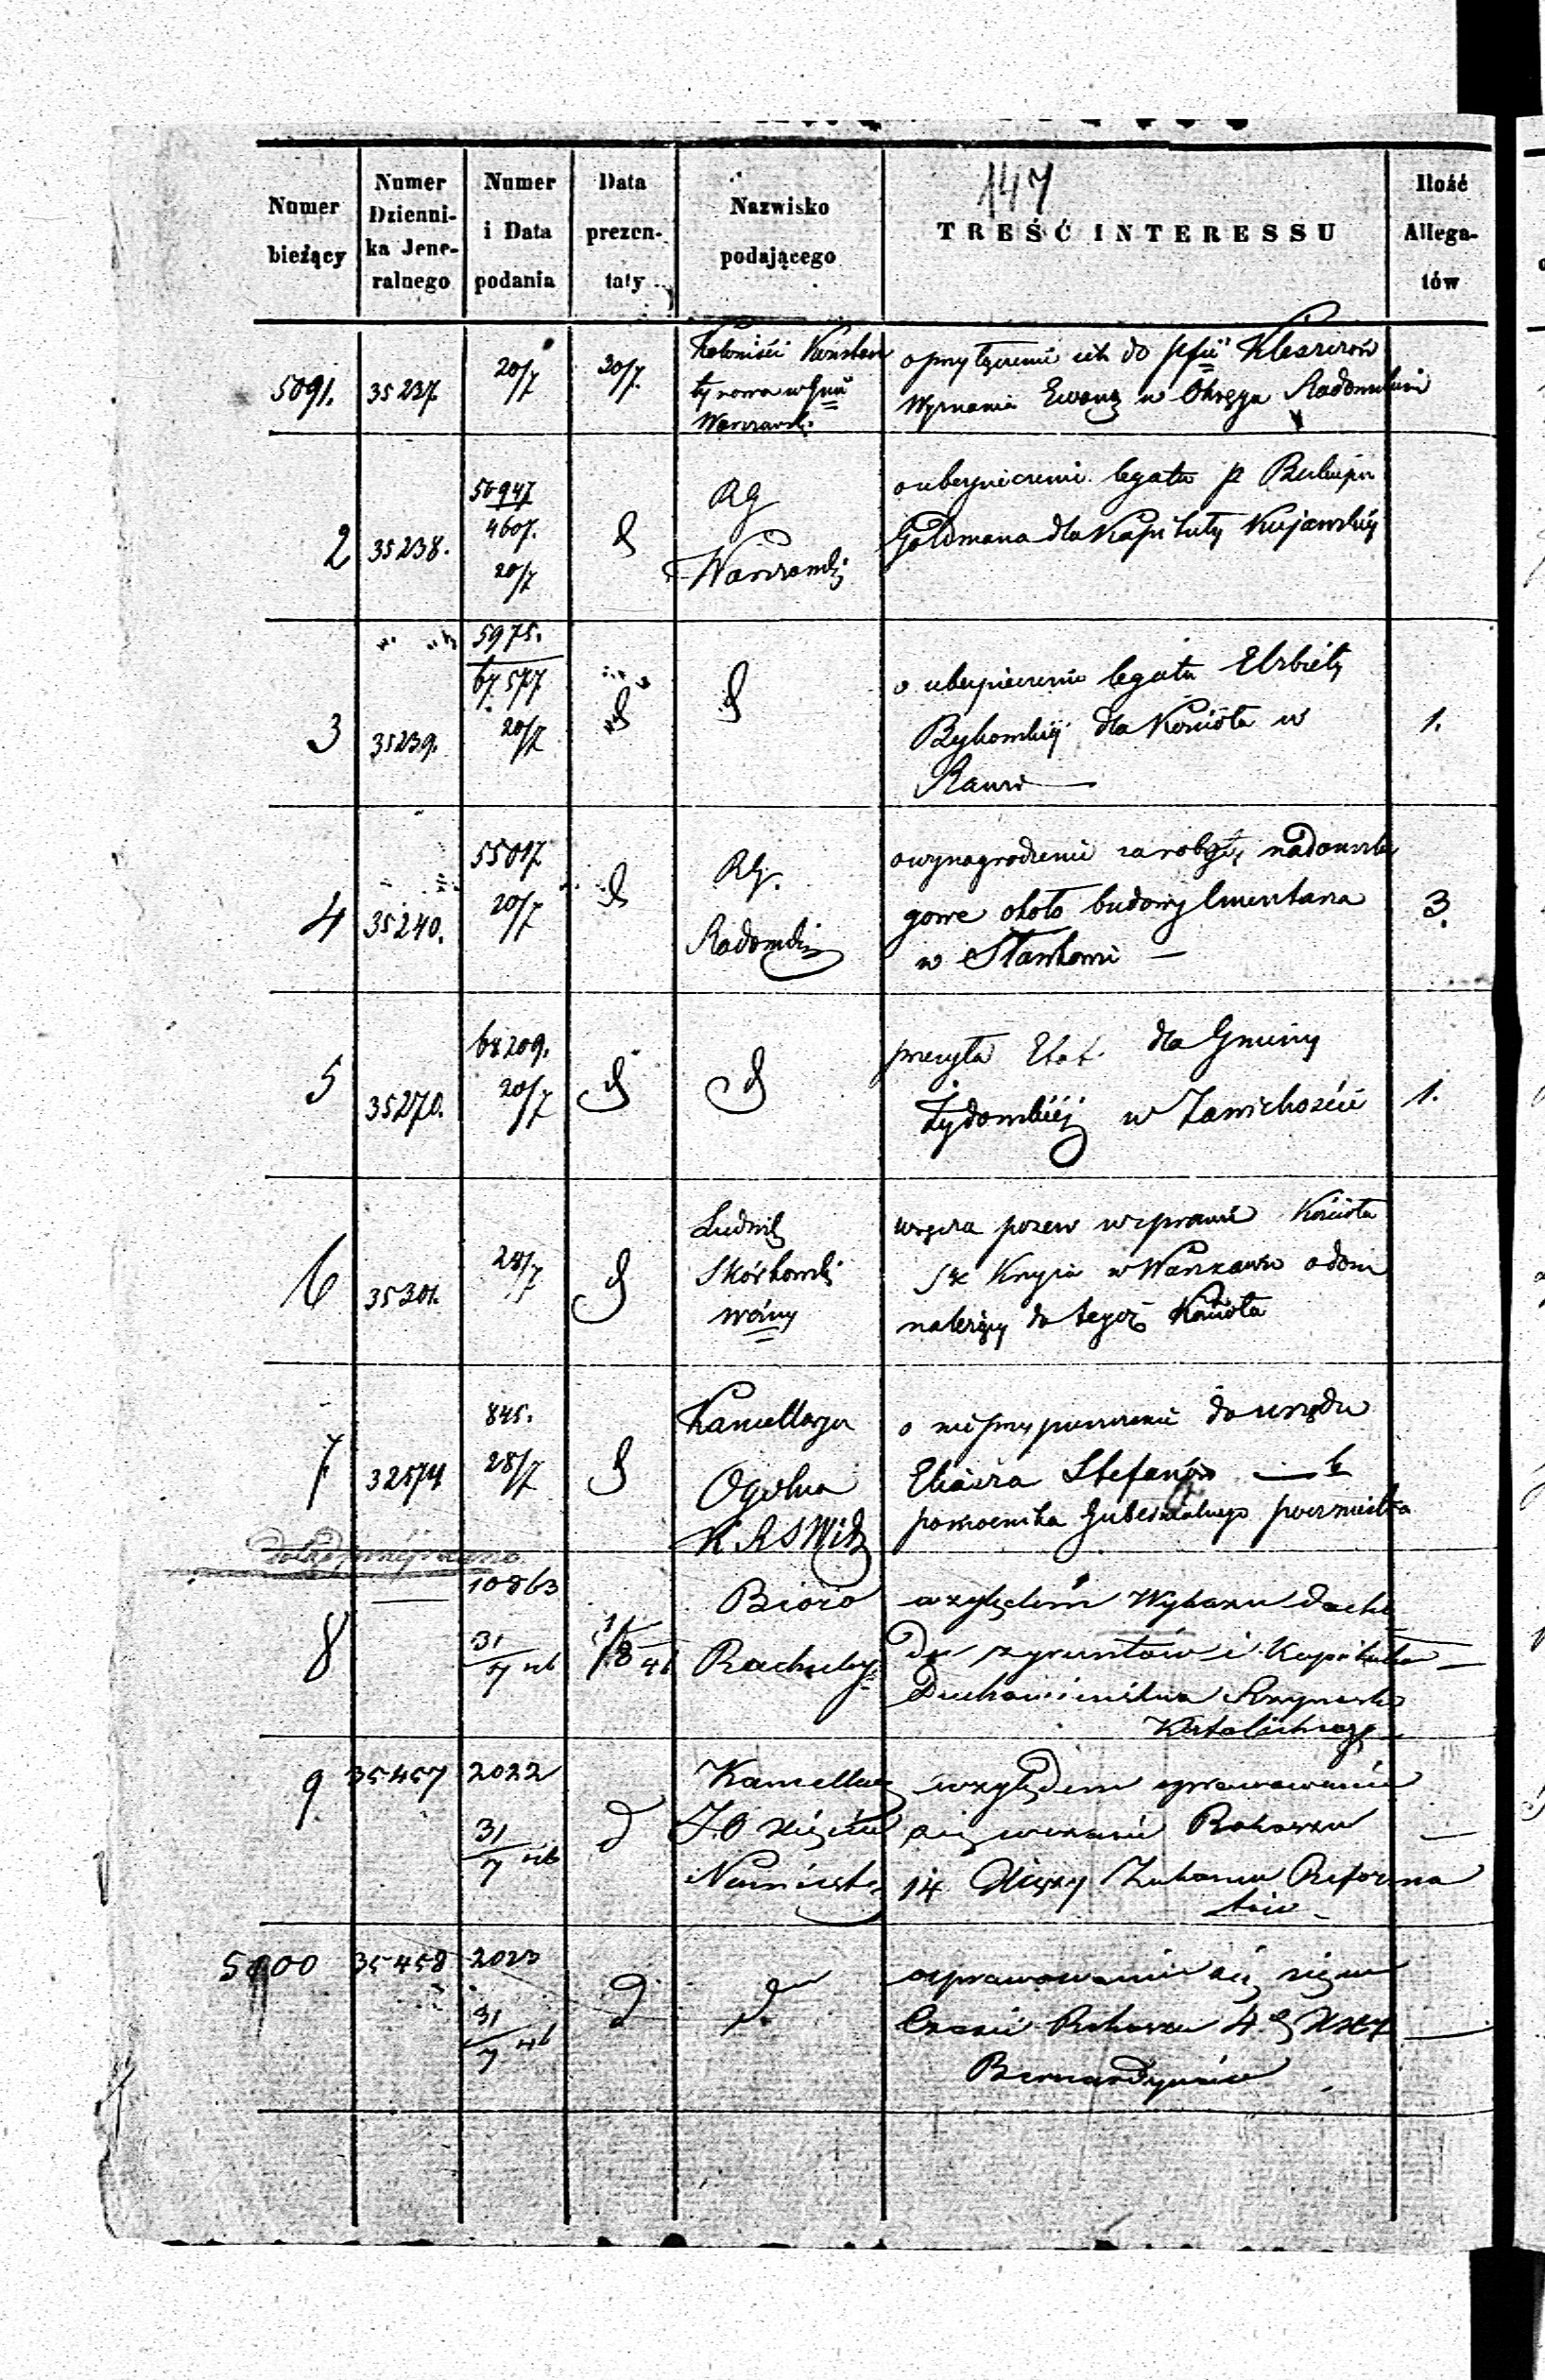 147
Numer bieżący | Numer Dzienni-ka Jene-ralnego | Numer i Data podania | Data prezen-taty | Nazwisko podającego | TREŚĆ INTERESSU | Ilość Allega-tów
5091. 35237. 20/7 30/7.
Koloniści
o przyłączenie ich do Kleszczów
Warszawsk:
Wyznania Ewang w Okręgu Radomskim
2 35238. 4607. 20/7
RG
Warszawski
o ubezpieczenie legatu p
Goldmana dla Kapituły Kujawskiej
3 35239. 5975. 67.577 20/7
o ubezpieczenie legatu Elżbiety
Bykowskiej dla Kościoła w
Rawie
1.
4 35240. 55017. 20/7
RG.
Radomski
o wynagrodzenie za roboty nadanszla
gowe około budowy Cmentarza
w Sławkowie
3.
5 35270. 68209. 20/7
przesyła Etat. dla Gminy
Żydowskiej w Zawichoście
1.
6 35301. 28/7
Ludwik
Skórkowski
woźny
wręcza pozew w sprawie Kościoła
Sgo Krzyża w Warszawie o dom
należący do tegoż Kościoła
7 32574 845. 28/7
Kancellarya
Ogólna
o nieprzypuszczenie do urzędu
Eliasza Stefanów
pomocnika Gubernialnego poczmistrza
8 10863 31/7 46 1/8 46
Bióro
Rachuby
względem Wykazu docho
du z gruntów i Kapitałów
Duchowieństwa Rzymsko
Katolickiego
9 35457 2022 31/7 46
Kancellarya
J.O Xięcia
Namiestn
względem sprawowania
się w czasie Rokoszu
14 Xięży Zakonu Reforma
tów
5100 35458 2023 31/7 46
d
do
o sprawowaniu się w
czasie Rokoszu 4. Xięży
Bernardynów